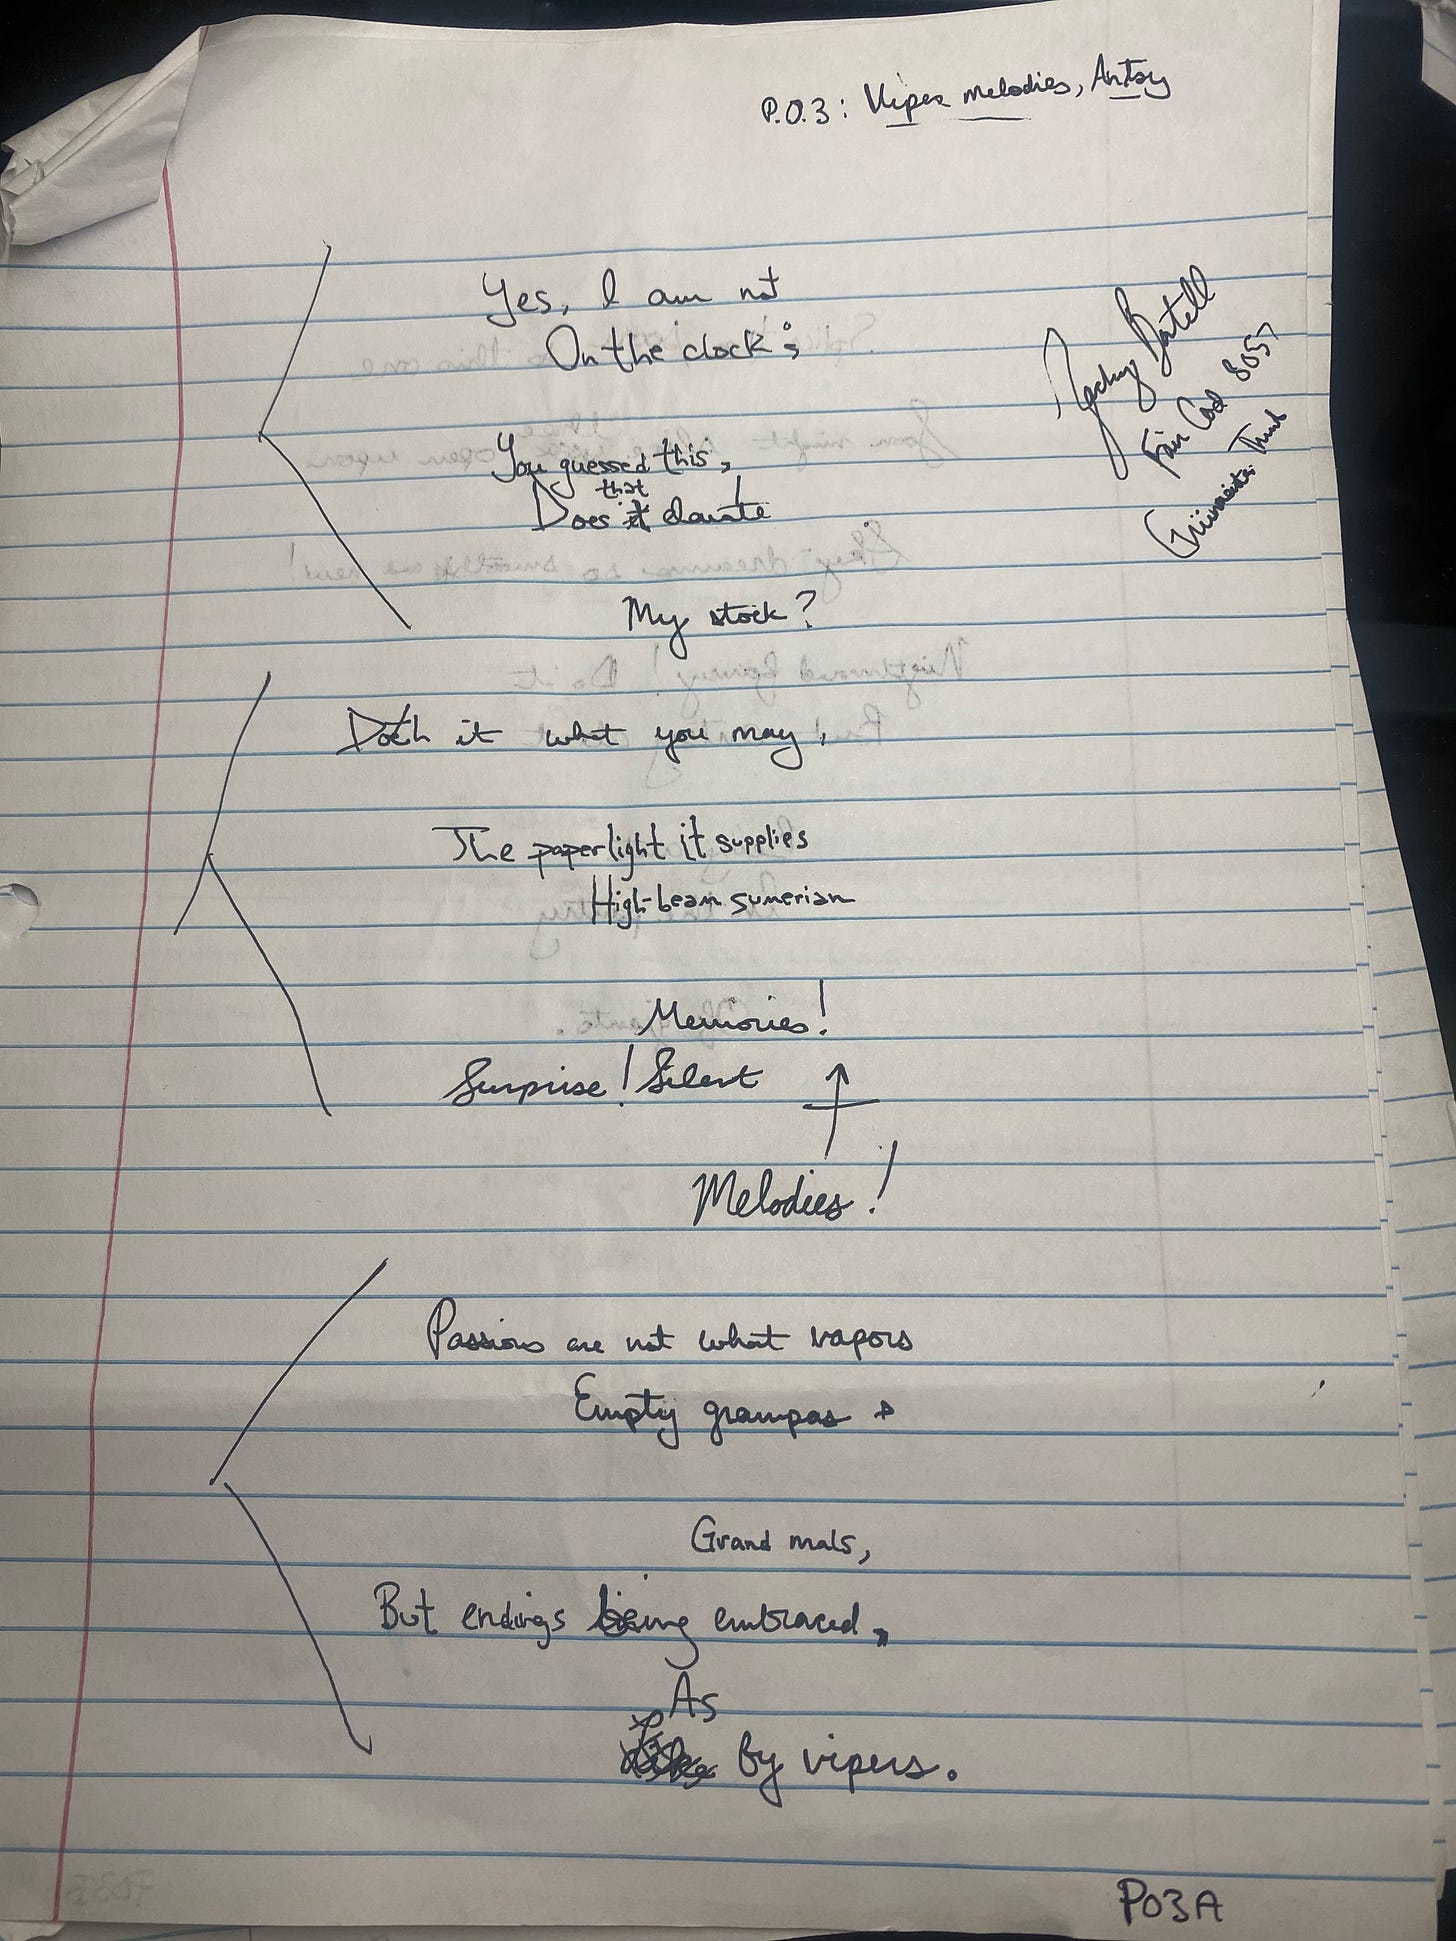 P.O.3: Viper melodies, Antsy
Yes, I am not
On the clock;
You guessed this,
that
Does it elevate
My stock?
Doth it what you may,
The paperlight it supplies
High-beam sumerian
Memories!
Surprise! Silent
Melodies!
Passions are not what vapors
Empty grampas
Grand mals,
But endings being embraced,
As
by vipers.
P03A